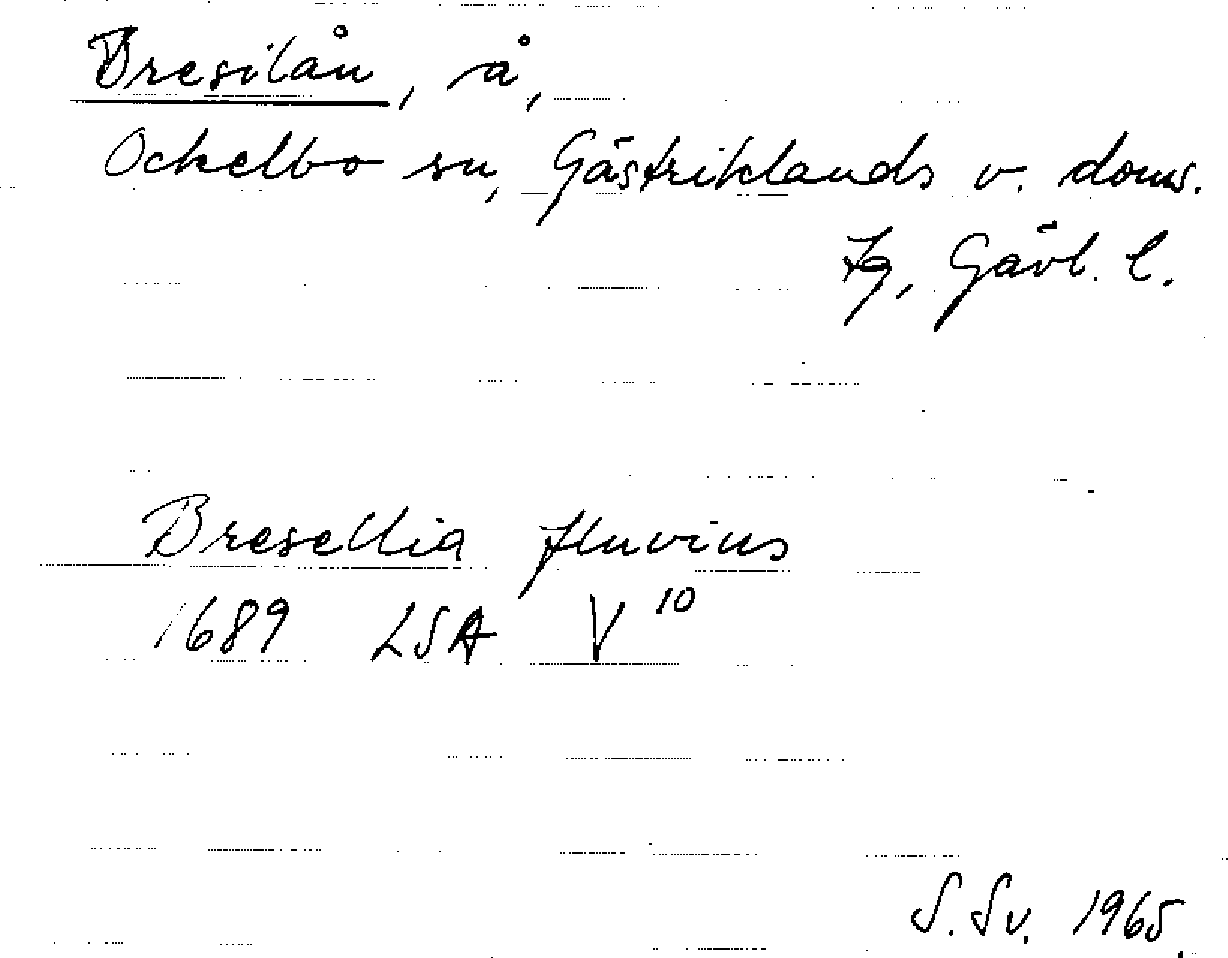 Bresilån, å,
Ockelbo sn, Gästriklands v. doms.
fg, Gävl. l.
Bresellia fluvius
1689 LSA V 10
S. Sv. 1965